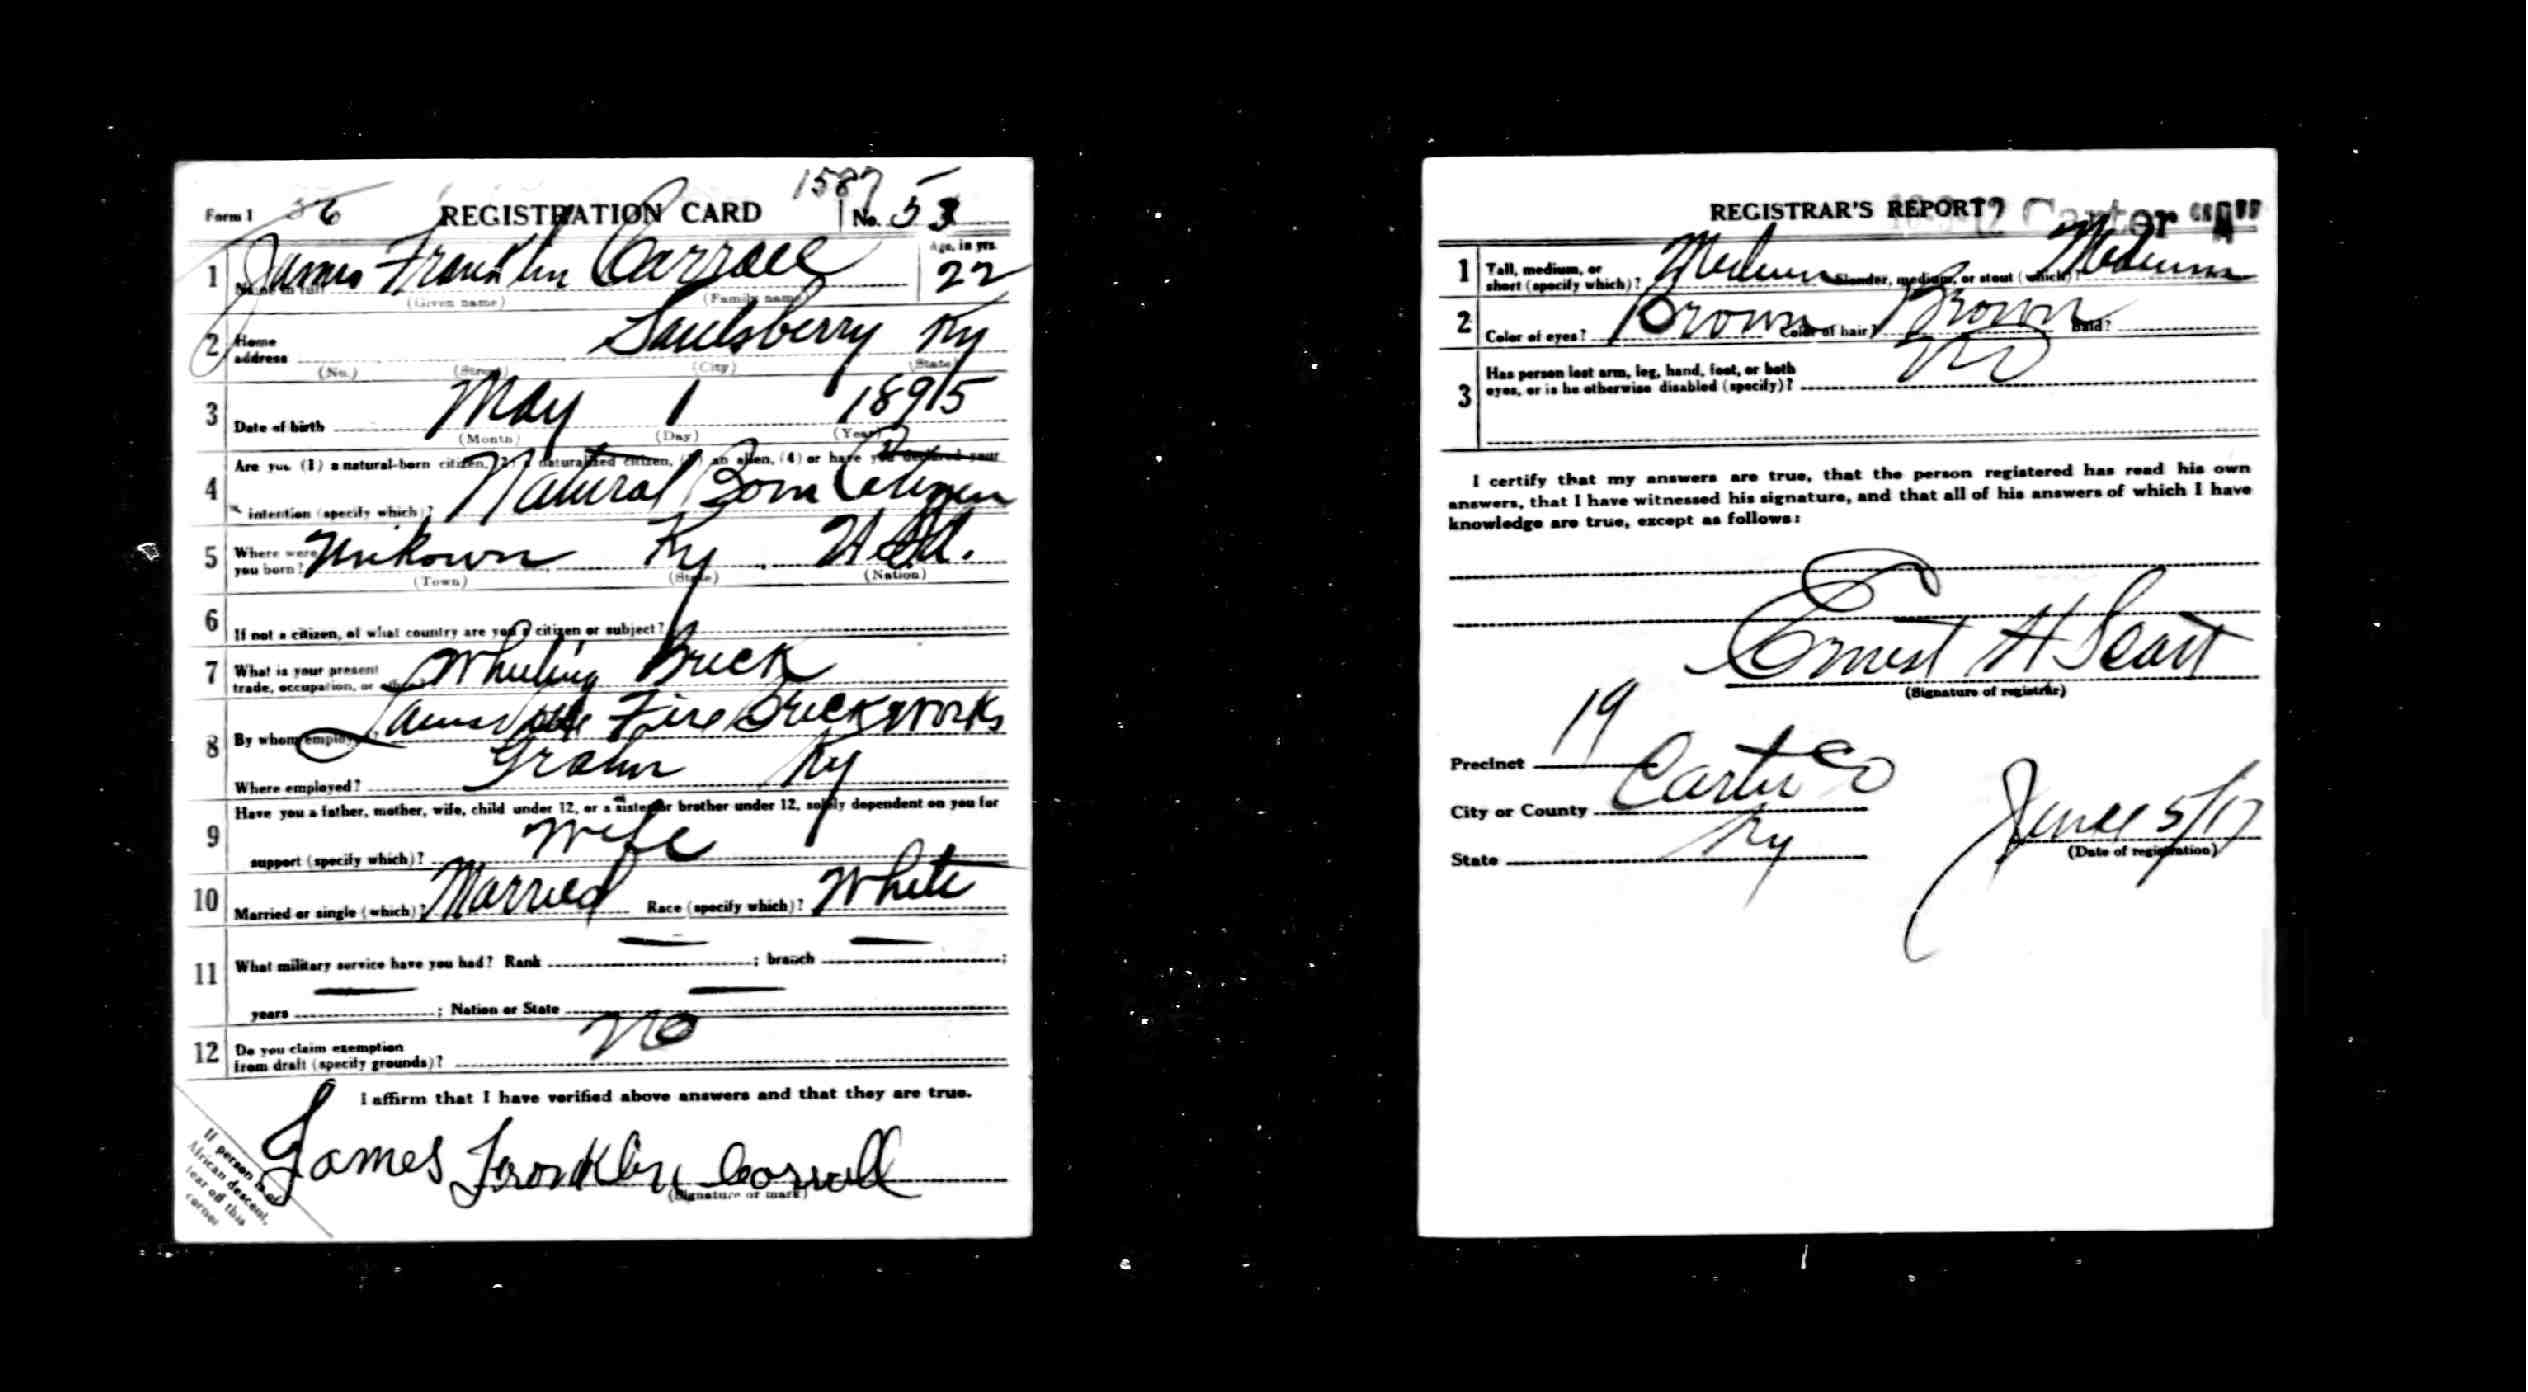 1587
Form 1 56 REGISTRATION CARD No. 53
1 James Franklin Carroll Age, in yrs. 22
Name in full (Given name) (Family name)
2 Home address Saulsberry Ky
(No.) (Street) (City) (State)
3 Date of birth May 1 1895
(Month) (Day) (Year)
4 Are you (1) a natural-born citizen, (2) a naturalized citizen, (3) an alien, (4) or have you declared your
intention (specify which)? Natural Born Citizen
5 Where were you born? Unkown Ky U.S.A.
(Town) (State) (Nation)
6 If not a citizen, of what country are you a citizen or subject?
7 What is your present trade, occupation, or office? Wheeling Brick
8 By whom employed? Louisville Fire Brick Works
Where employed? Grahn Ky
9 Have you a father, mother, wife, child under 12, or a sister or brother under 12, solely dependent on you for
support (specify which)? Wife
10 Married or single (which)? Married Race (specify which)? White
11 What military service have you had? Rank — ; branch — ;
years — ; Nation or State —
12 Do you claim exemption from draft (specify grounds)? No
I affirm that I have verified above answers and that they are true.
James Franklin Carroll
(Signature or mark)
If person is of
African descent,
tear off this
corner
REGISTRAR'S REPORT Carter
1 Tall, medium, or short (specify which)? Medium Slender, medium, or stout (which)? Medium
2 Color of eyes? Brown Color of hair? Brown Bald?
3 Has person lost arm, leg, hand, foot, or both
eyes, or is he otherwise disabled (specify)? No
I certify that my answers are true, that the person registered has read his own
answers, that I have witnessed his signature, and that all of his answers of which I have
knowledge are true, except as follows:
Ernest H Scott
(Signature of registrar)
Precinct 19
City or County Carter Co
State Ky
June 5/17
(Date of registration)